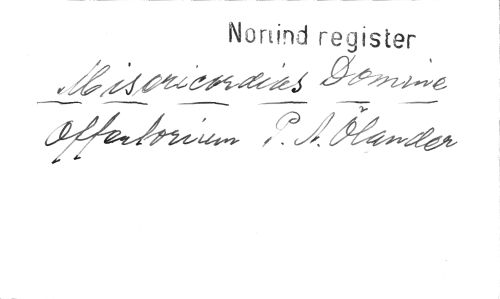 Nomind register
Misericordias Domine
Offertorium P. A. Ölander